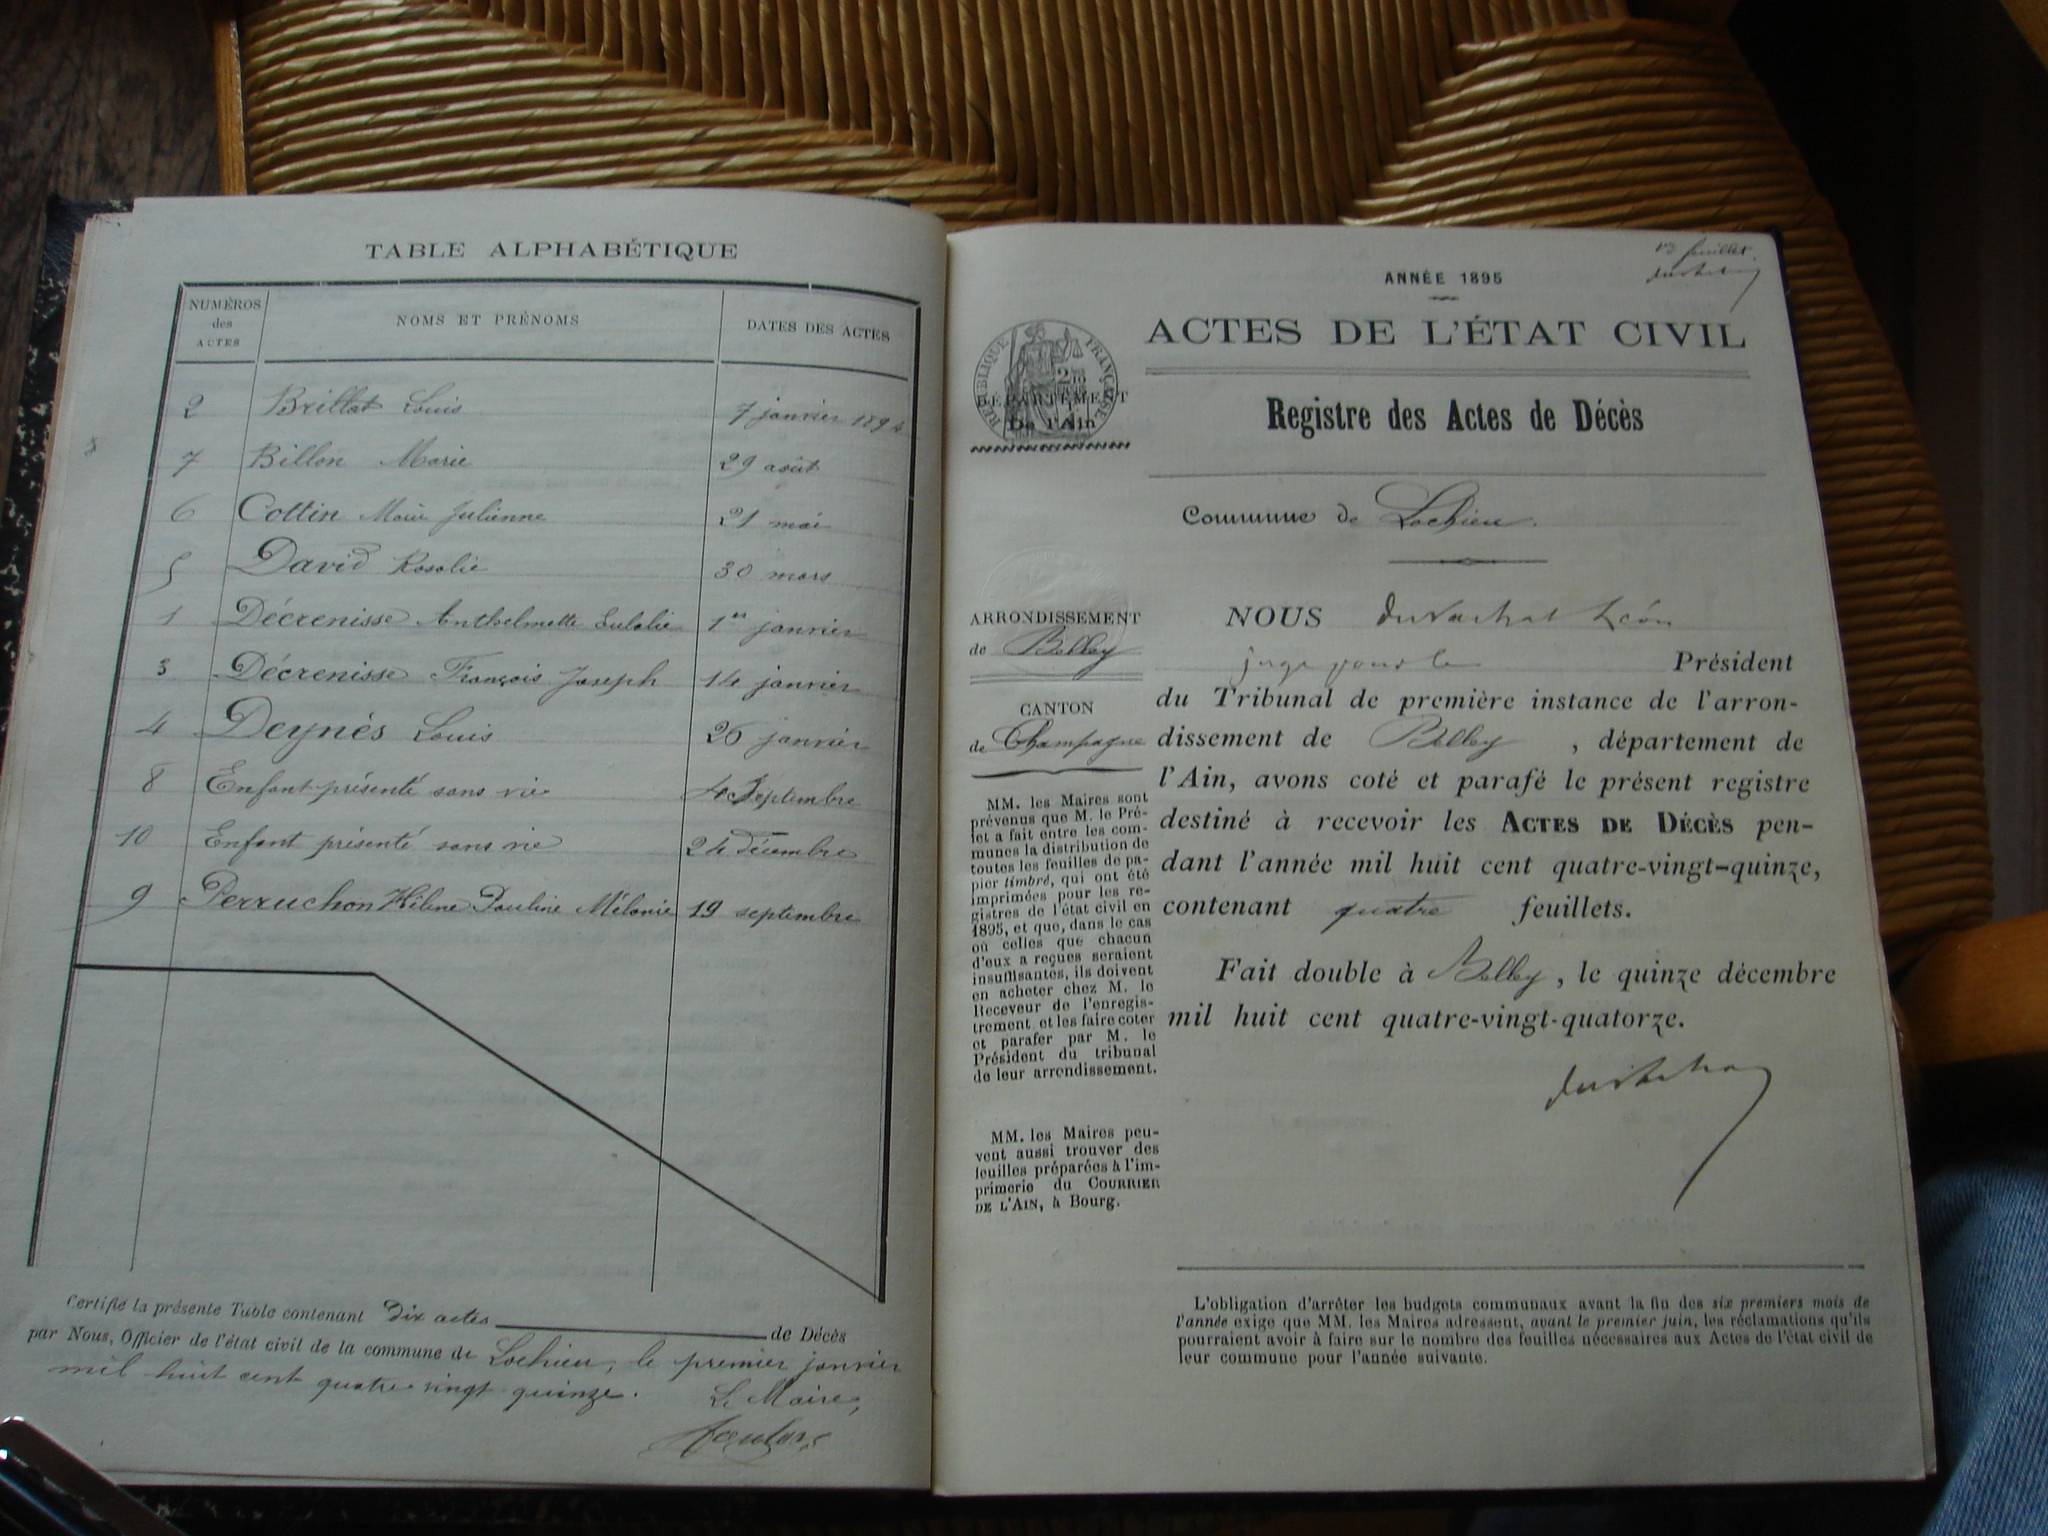 TABLE ALPHABÉTIQUE
NUMÉROS
des
ACTES
NOMS ET PRÉNOMS
DATES DES ACTES
2 Brillat Louis 7 janvier 1894
7 Billon Marie 29 août
6 Cottin Marie Julienne 21 mai
5 David Rosalie 30 mars
1 Décrenisse Anthelmette Eulalie 1er janvier
3 Décrenisse François Joseph 14 janvier
4 Deynès Louis 26 janvier
8 Enfant présenté sans vie 4 Septembre
10 Enfant présenté sans vie 24 décembre
9 Perruchon Hélène Pauline Mélanie 19 septembre
Certifié la présente Table contenant Dix actes de Décès
par Nous, Officier de l'état civil de la commune de Lochieu, le premier janvier
mil huit cent quatre vingt quinze.
Le Maire,
1er feuillet.
ANNÉE 1895
ACTES DE L'ÉTAT CIVIL
RÉPUBLIQUE FRANÇAISE
DÉPARTEMENT
De l'Ain
Registre des Actes de Décès
Commune de Lochieu.
ARRONDISSEMENT
de Belley
CANTON
de Champagne
MM. les Maires sont
prévenus que M. le Pré-
fet a fait entre les com-
munes la distribution de
toutes les feuilles de pa-
pier timbré, qui ont été
imprimées pour les re-
gistres de l'état civil en
1895, et que, dans le cas
où celles que chacun
d'eux a reçues seraient
insuffisantes, ils doivent
en acheter chez M. le
Receveur de l'enregis-
trement et les faire coter
et parafer par M. le
Président du tribunal
de leur arrondissement.
MM. les Maires peu-
vent aussi trouver des
feuilles préparées à l'im-
primerie du COURRIER
DE L'AIN, à Bourg.
NOUS Duvachat Léon
juge pour le Président
du Tribunal de première instance de l'arron-
dissement de Belley, département de
l'Ain, avons coté et parafé le présent registre
destiné à recevoir les ACTES DE DÉCÈS pen-
dant l'année mil huit cent quatre-vingt-quinze,
contenant quatre feuillets.
Fait double à Belley, le quinze décembre
mil huit cent quatre-vingt-quatorze.
L'obligation d'arrêter les budgets communaux avant la fin des six premiers mois de
l'année exige que MM. les Maires adressent, avant le premier juin, les réclamations qu'ils
pourraient avoir à faire sur le nombre des feuilles nécessaires aux Actes de l'état civil de
leur commune pour l'année suivante.